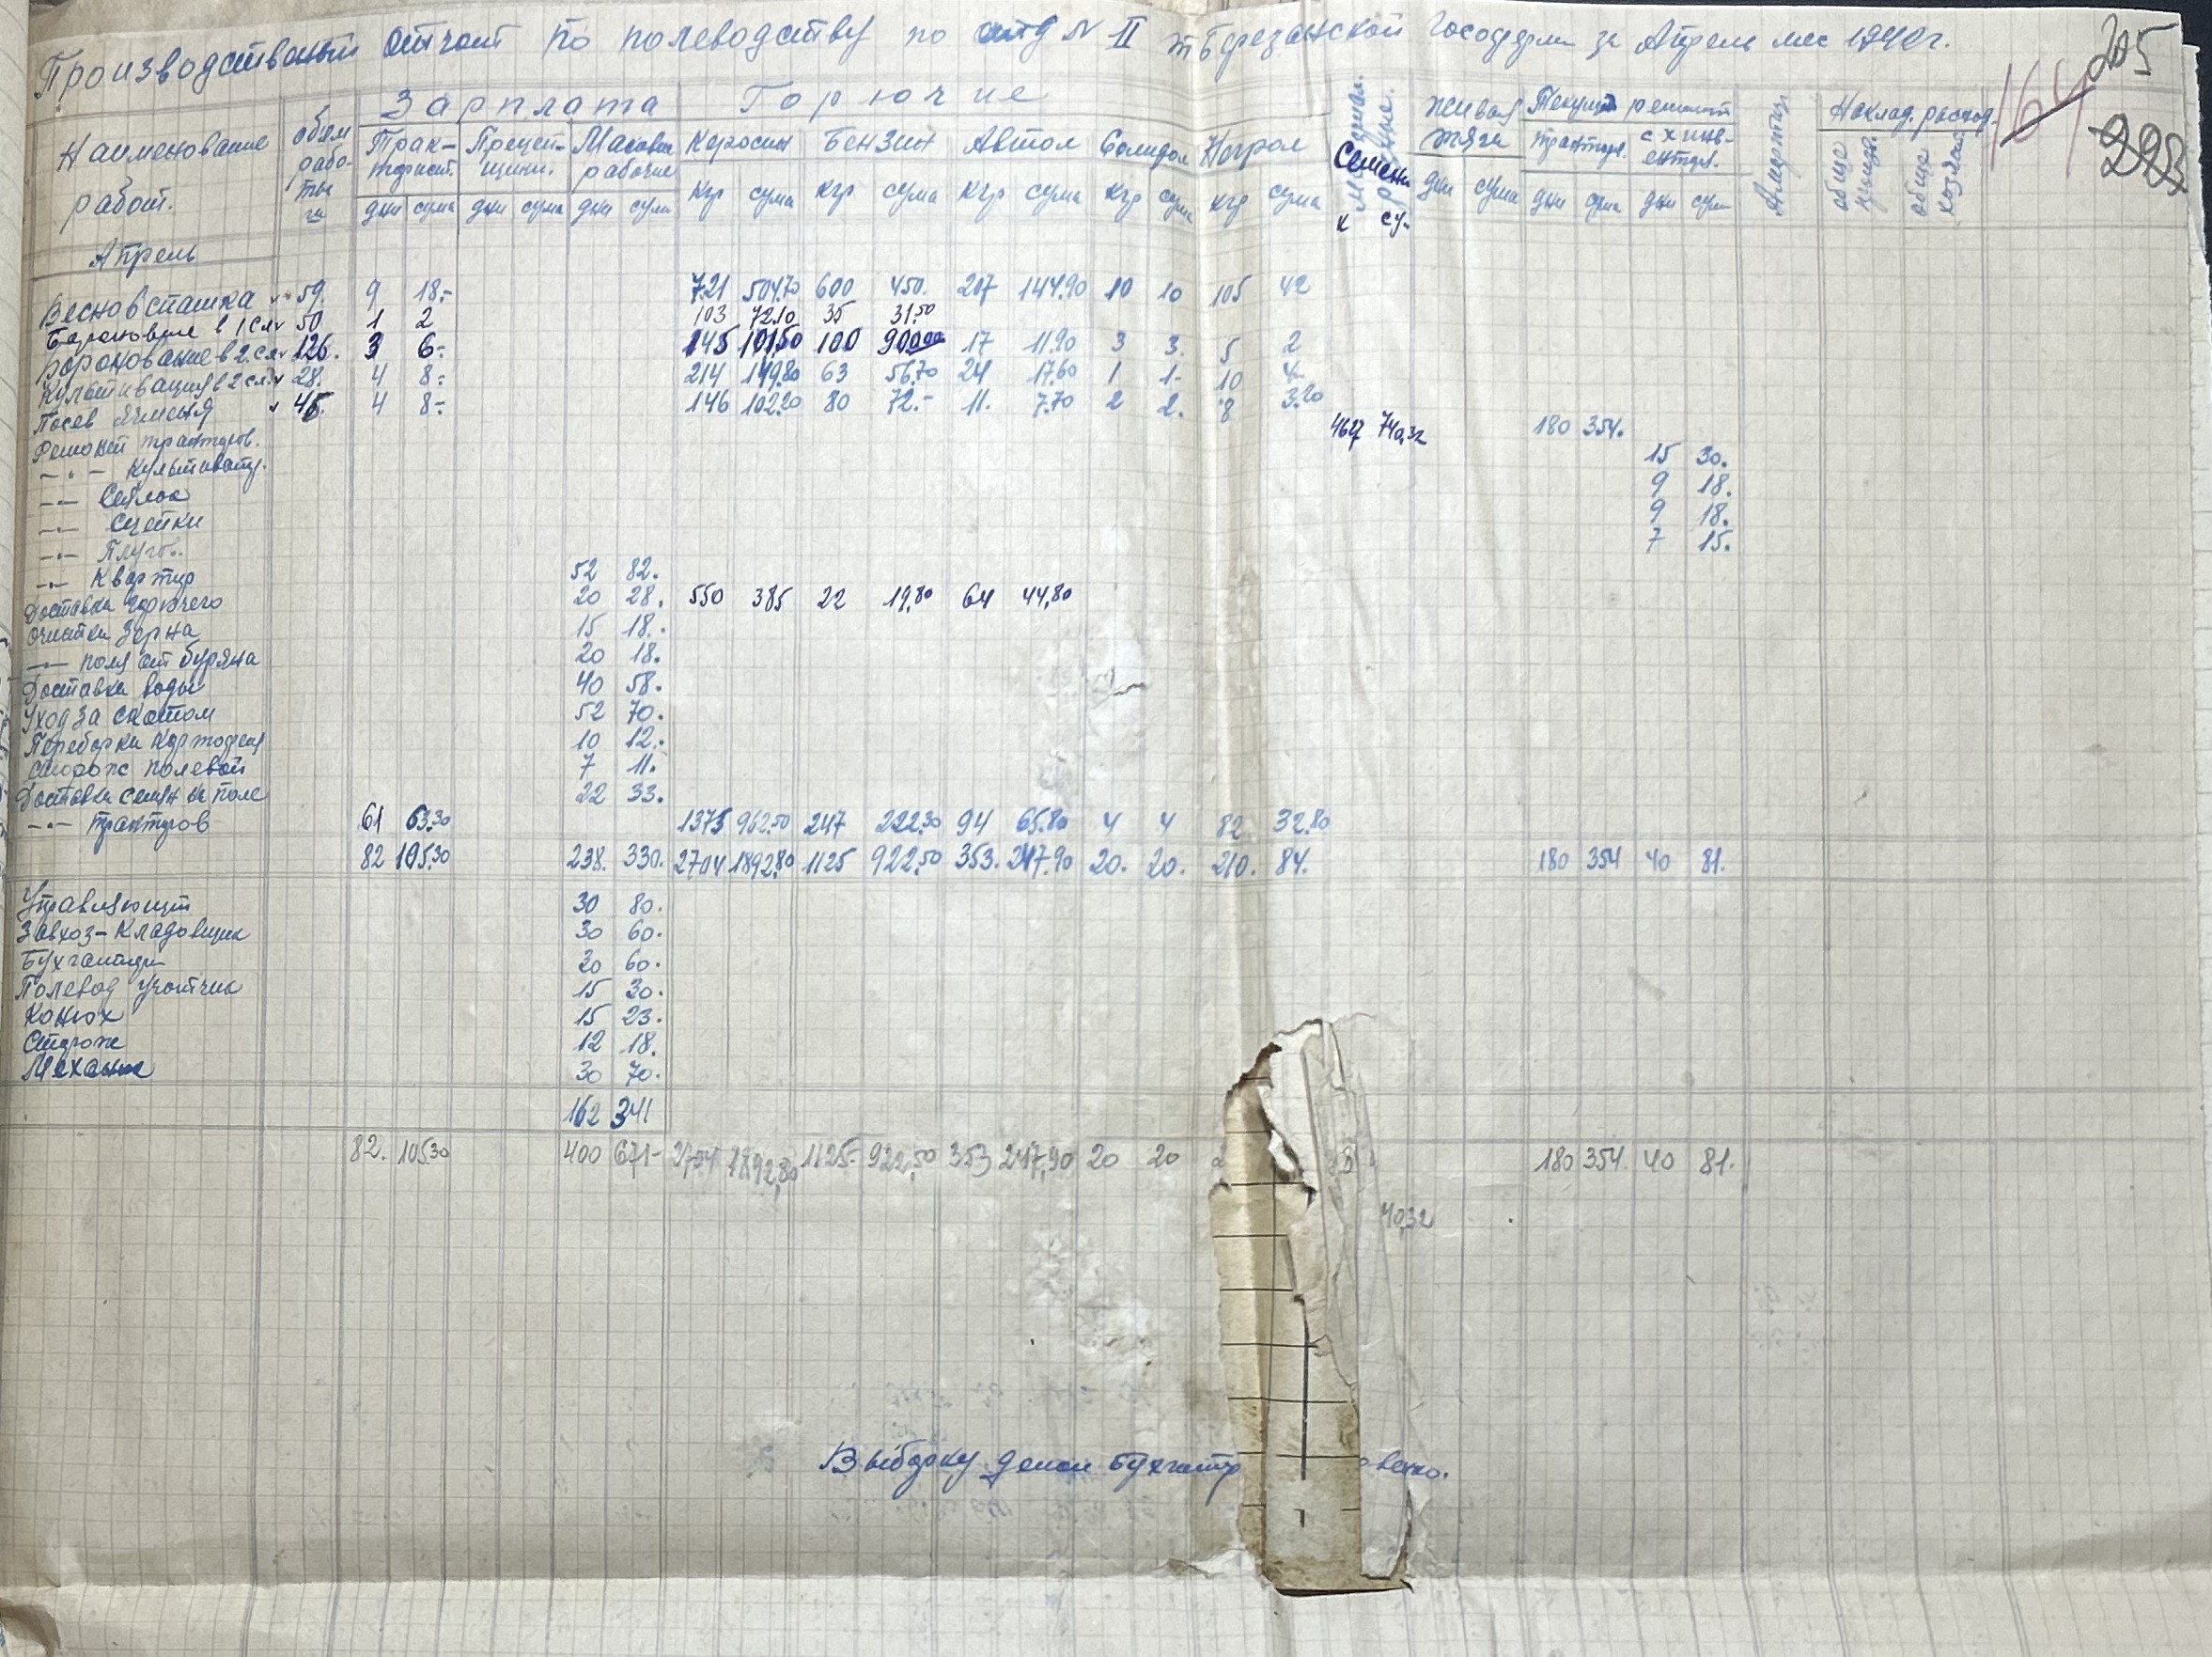 Производствений отчот по полеводству по отд № II Березанской Госферми за Апрель мес 194 г.
205
164
223
Наименование работ.
обем работы га
Зарплата
Горючие
Материал. разные.
Живая тяга
Текущи ремонт
Амортиз
Наклад. расход.
Трактарист. Прецепщики. Масовие рабочие Керосин Бензин Автол Солидол Нигрол Семена трактор. с х инвентар. обще обще хозяй.
дни сума дни сума дни сума кгр сума кгр сума кгр сума кгр сума кгр сума к су. дни сума дни сума дни сум
Апрель
Весновспашка 59. 9 18,- 721 504.70 600 450. 207 144.90 10 10 105 42
Бароновние в 1 сл 50 1 2 103 72.10 35 31.50
Боронование в 2. сл 126. 3 6- 145 101.50 100 90 17 11.90 3 3. 5 2
Культивация в 2 сл. 28. 4 8- 214 149.80 63 56.70 24 17.60 1 1- 10 4-
Посев Ячменя 45. 4 8- 146 102.20 80 72.- 11. 7.70 2 2. 8 3.20
4627 740,32
Ремонт тракторов. 180 354.
-"- Культиватор. 15 30.
-"- Сеялок 9 18.
-"- Сцепки 9 18.
-"- Плугов. 7 15.
-"- Квартир 52 82.
Доставка горючего 20 28. 550 385 22 19,80 64 44,80
Очистка Зерна 15 18.
-"- поля от буряна 20 18.
Доставка воды 40 58.
Уход за скотом 52 70.
Переборка картофеля 10 12.
Сторож полевой 7 11.
Доставка семян на поле 22 33.
-"- тракторов 61 63.30 1375 962.50 247 222.30 94 65.80 4 4 82 32.80
82 105.30 238. 330. 2704 1892.80 1125 922.50 353. 247.90 20. 20. 210. 84. 180 354 40 81.
Управляющий 30 80.
Завхоз-Кладовщик 30 60.
Бухгалтер 30 60.
Полевод учотчик 15 30.
Конюх 15 23.
Сторож 12 18.
Механик 30 70.
162 341
82. 105.30 400 671- 2704 1892,80 1125- 922,50 353 247,90 20 20 180 354. 40 81.
40,32
Выборку делал Бухгалтр венко.